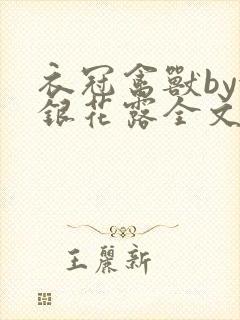 衣冠禽獸by
銀花露全文
王麗新